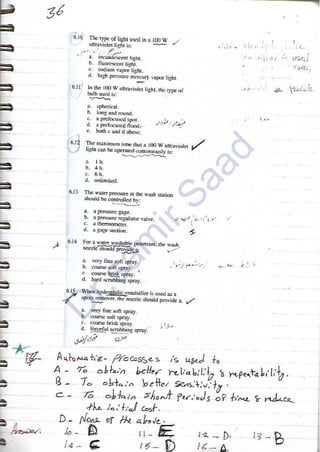 36
6.10 The type of light used in a 100 W
ultraviolet light is:
a. incandescent light.
b. fluorescent light.
c. sodium vapor light.
d. high pressure mercury vapor light.
6.11 In the 100 W ultraviolet light, the type of
bulb used is:
a. spherical.
b. long and round.
c. a prefocused spot.
d. a prefocused flood.
e. both c and d above.
6.12 The maximum time that a 100 W ultraviolet
light can be operated continuously is:
a. 1 h.
b. 4 h.
c. 6 h.
d. unlimited.
6.13 The water pressure at the wash station
should be controlled by:
a. a pressure gage.
b. a pressure regulator valve.
c. a thermometer.
d. a gage section.
6.14 For a water washable penetrant, the wash
nozzle should provide a:
a. very fine soft spray.
b. course soft spray.
c. coarse brisk spray.
d. hard scrubbing spray.
6.15 When hydrophilic emulsifier is used as a
spray remover, the nozzle should provide a:
a. very fine soft spray.
b. course soft spray.
c. coarse brisk spray.
d. forceful scrubbing spray.
Samir Saad
Automatic- Processes is used to
A - To obtain better reliability & repeatability.
B - To obtain better sensitivity.
C - To obtain short periods of time & reduce
the initial cost.
D - None of the above.
Answer. 10 - D 11 - E 12 - D. 13 - B
14 - C 15 - D 16 - A